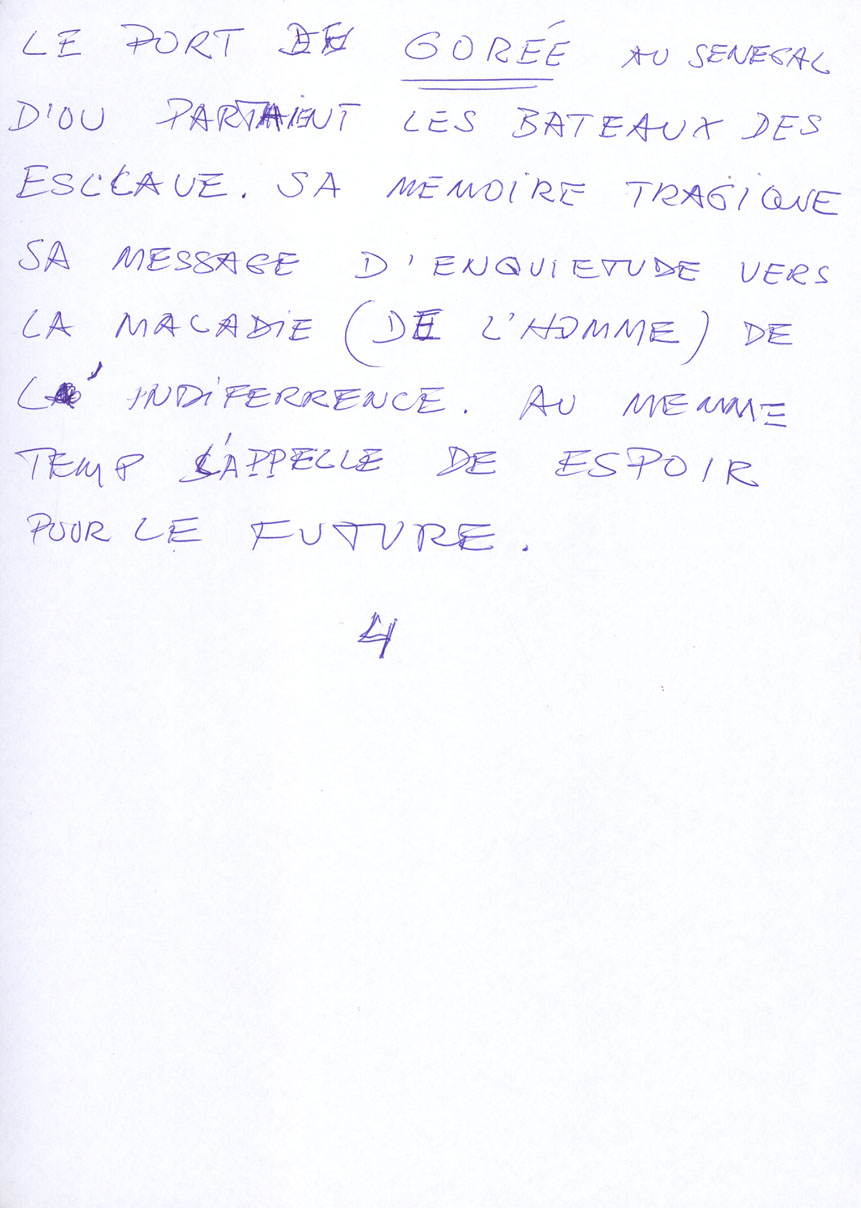 LE PORT DE GORÉE AU SENEGAL
D'OU PARTAIENT LES BATEAUX DES
ESCLAVE. SA MEMOIRE TRAGIQUE
SA MESSAGE D'ENQUIETUDE VERS
LA MALADIE (DE L'HOMME) DE
L' INDIFERRENCE. AU MEMME
TEMP S'APPELLE DE ESPOIR
POUR LE FUTURE.
4